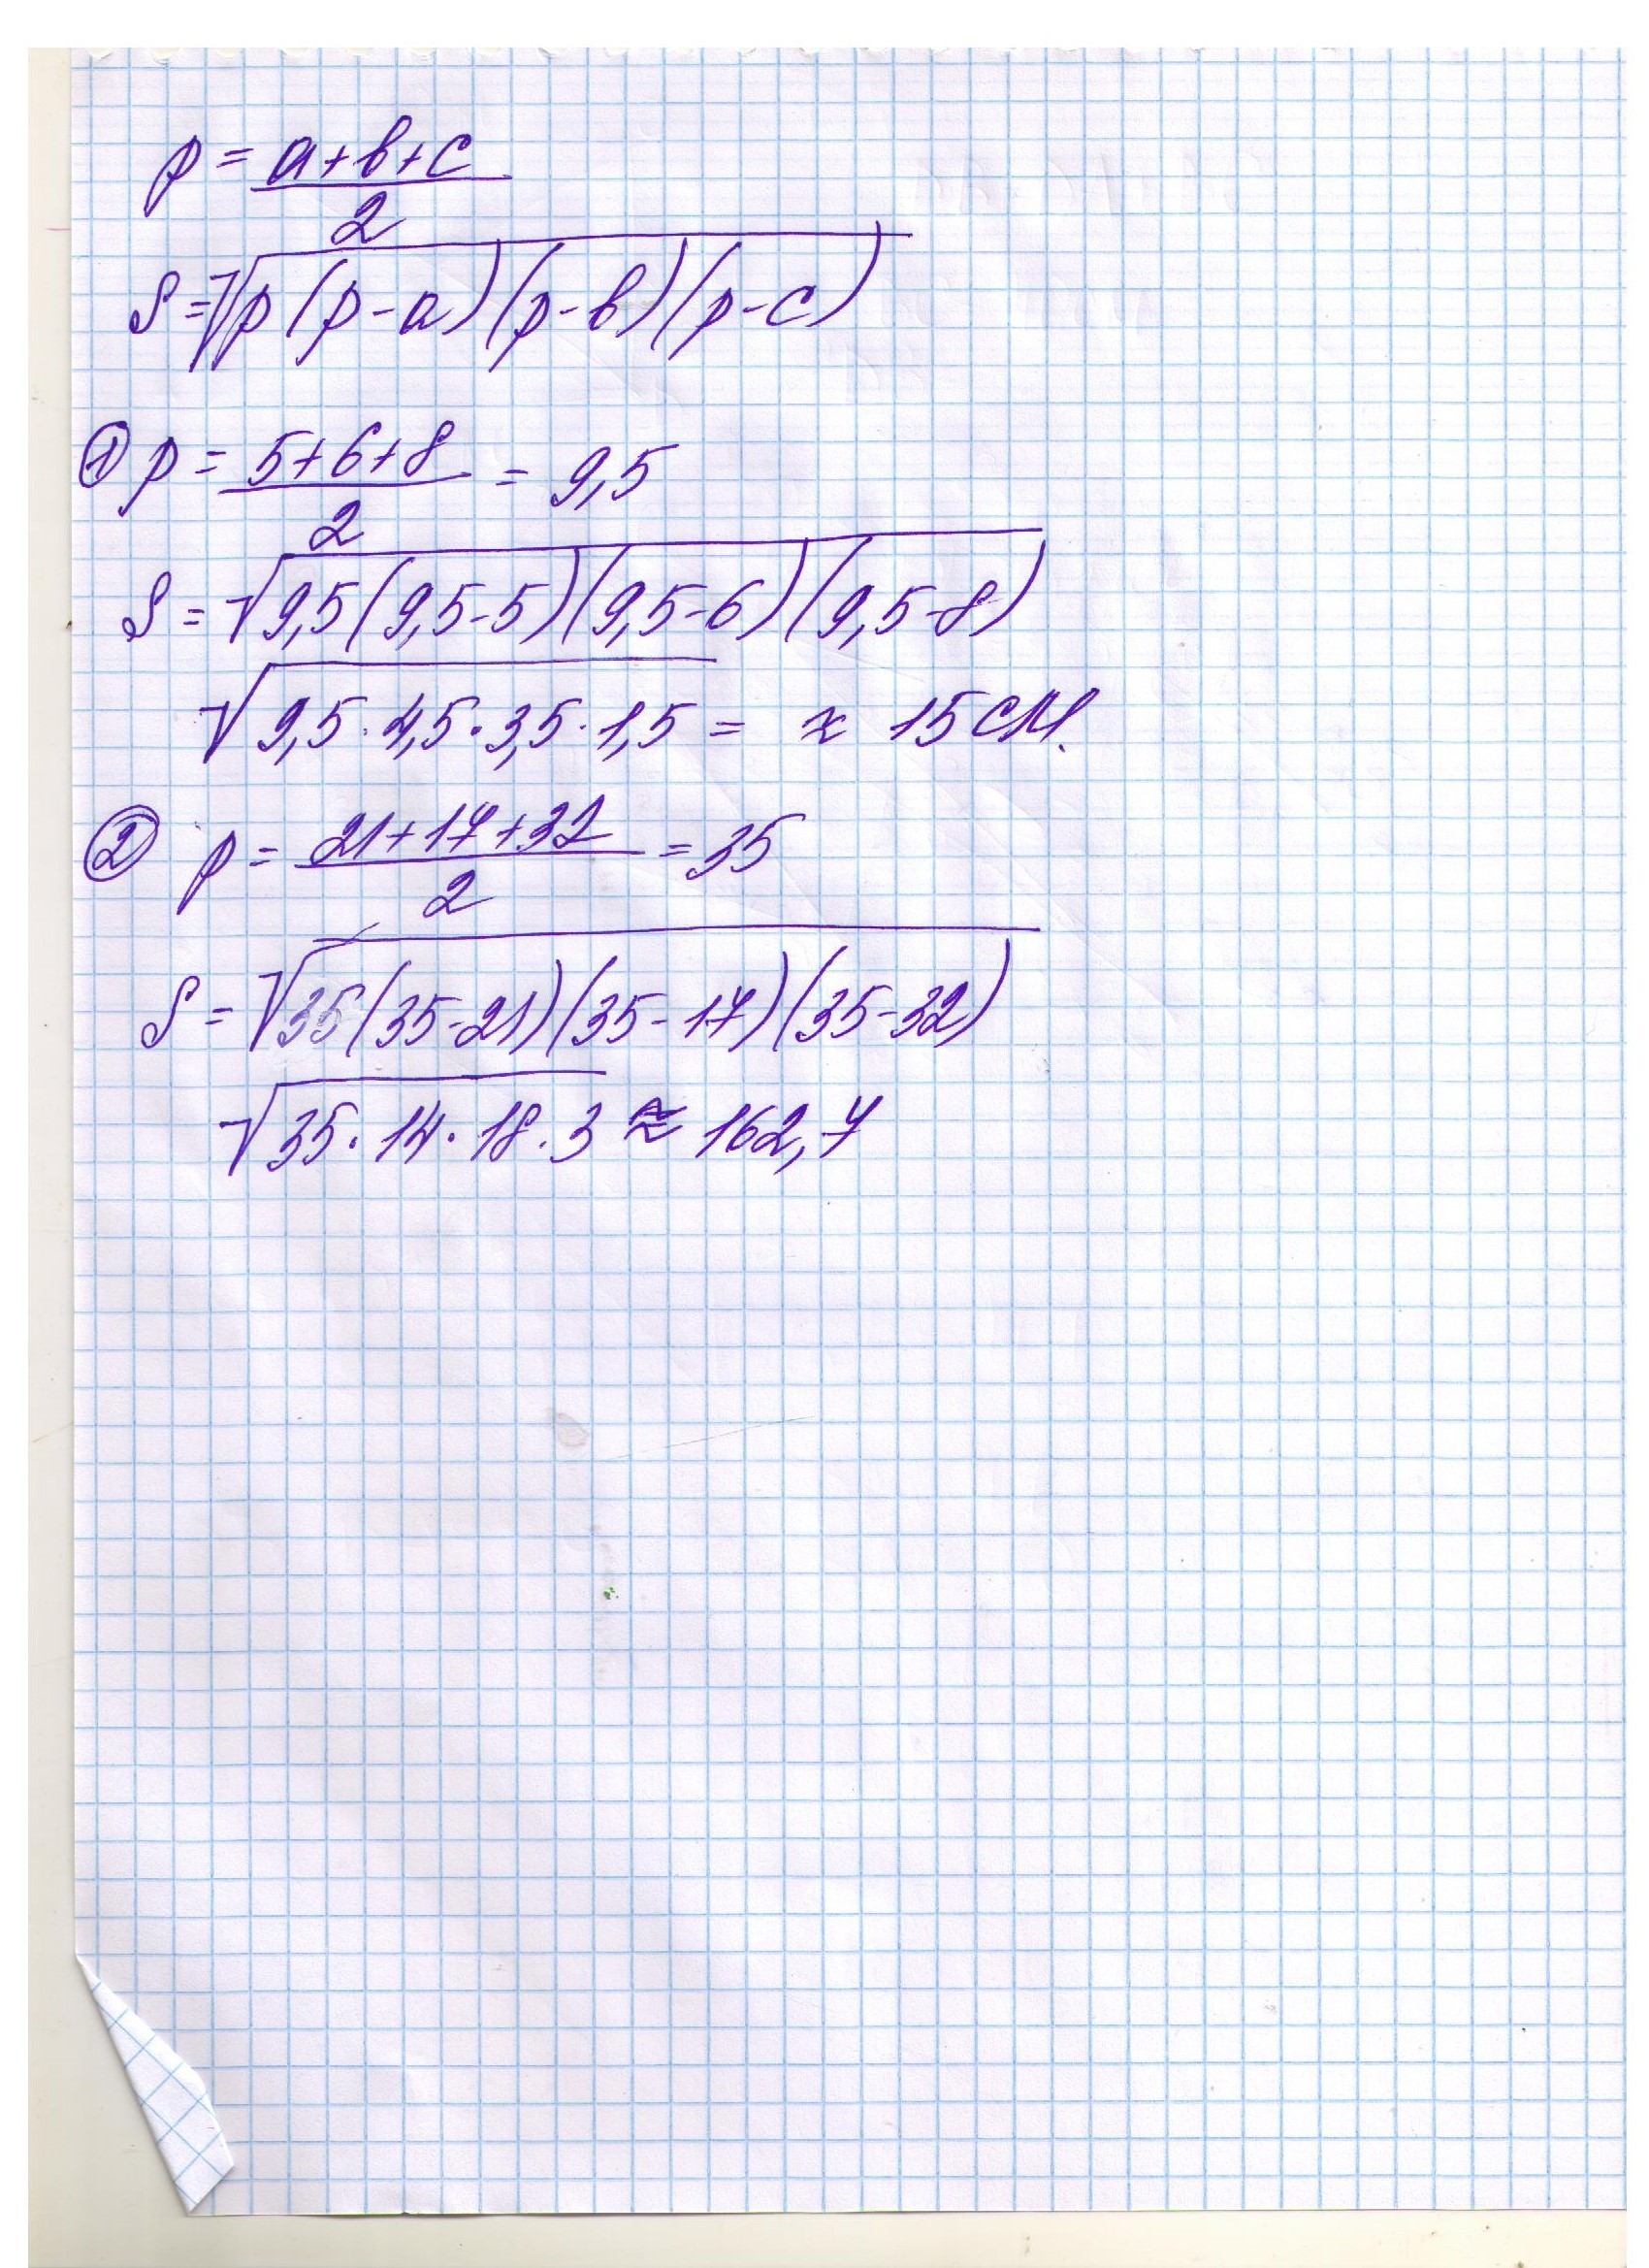 p = a+b+c / 2
S = √p(p-a)(p-b)(p-c)
① p = 5+6+8 / 2 = 9,5
S = √9,5(9,5-5)(9,5-6)(9,5-8)
√9,5·4,5·3,5·1,5 = ≈ 15 см.
② p = 21+17+32 / 2 = 35
S = √35(35-21)(35-17)(35-32)
√35·14·18·3 ≈ 162,7